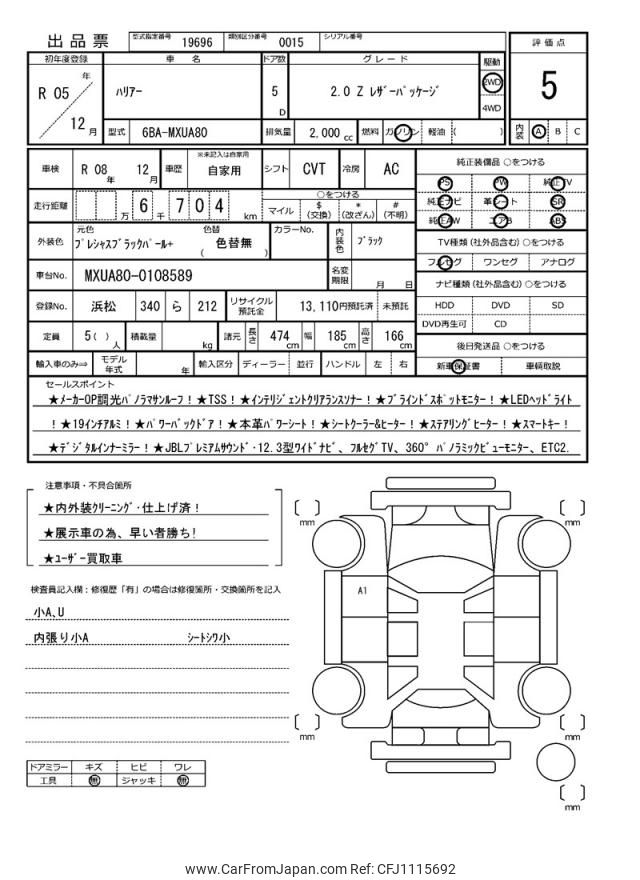 出品票
型式指定番号 19696 類別区分番号 0015 シリアル番号
初年度登録 車名 ドア数 グレード 駆動 評価点
R 05 年 12 月 ハリアー 5 D 2.0 Z レザーパッケージ 2WD 4WD 5
型式 6BA-MXUA80 排気量 2,000 cc 燃料 ガソリン 軽油 ( ) 内装 A B C
車検 R 08 年 12 月 車歴 ※未記入は自家用 自家用 シフト CVT 冷房 AC 純正装備品 ○をつける
PS PW 純正TV
走行距離 万 6 千 7 0 4 km ○をつける マイル $ (交換) * (改ざん) # (不明) 純正ナビ 革シート SR
純正AW エアB ABS
外装色 元色 プレシャスブラックパール+ 色替 ( 色替無 ) カラーNo. 内装色 ブラック TV種類 (社外品含む) ○をつける
フルセグ ワンセグ アナログ
車台No. MXUA80-0108589 名変期限 月 日 ナビ種類 (社外品含む) ○をつける
登録No. 浜松 340 ら 212 リサイクル預託金 13,110円預託済 未預託 HDD DVD SD
DVD再生可 CD
定員 5 ( ) 人 積載量 kg 諸元 長さ 474 cm 幅 185 cm 高さ 166 cm 後日発送品 ○をつける
輸入車のみ⇒ モデル年式 年 輸入区分 ディーラー 並行 ハンドル 左 右 新車保証書 車輌取説
セールスポイント
★メーカーOP調光パノラマサンルーフ！★TSS！★インテリジェントクリアランスソナー！★ブラインドスポットモニター！★LEDヘッドライト
！★19インチアルミ！★パワーバックドア！★本革パワーシート！★シートクーラー&ヒーター！★ステアリングヒーター！★スマートキー！
★デジタルインナーミラー！★JBLプレミアムサウンド・12.3型ワイドナビ、フルセグTV、360°パノラミックビューモニター、ETC2.
注意事項・不具合箇所
★内外装クリーニング・仕上げ済！
★展示車の為、早い者勝ち!
★ユーザー買取車
検査員記入欄：修復歴「有」の場合は修復箇所・交換箇所を記入
小A、U
内張り小A シートシワ小
mm mm
A1
mm mm
mm
ドアミラー キズ ヒビ ワレ
工具 無 ジャッキ 無
www.CarFromJapan.com Ref: CFJ1115692